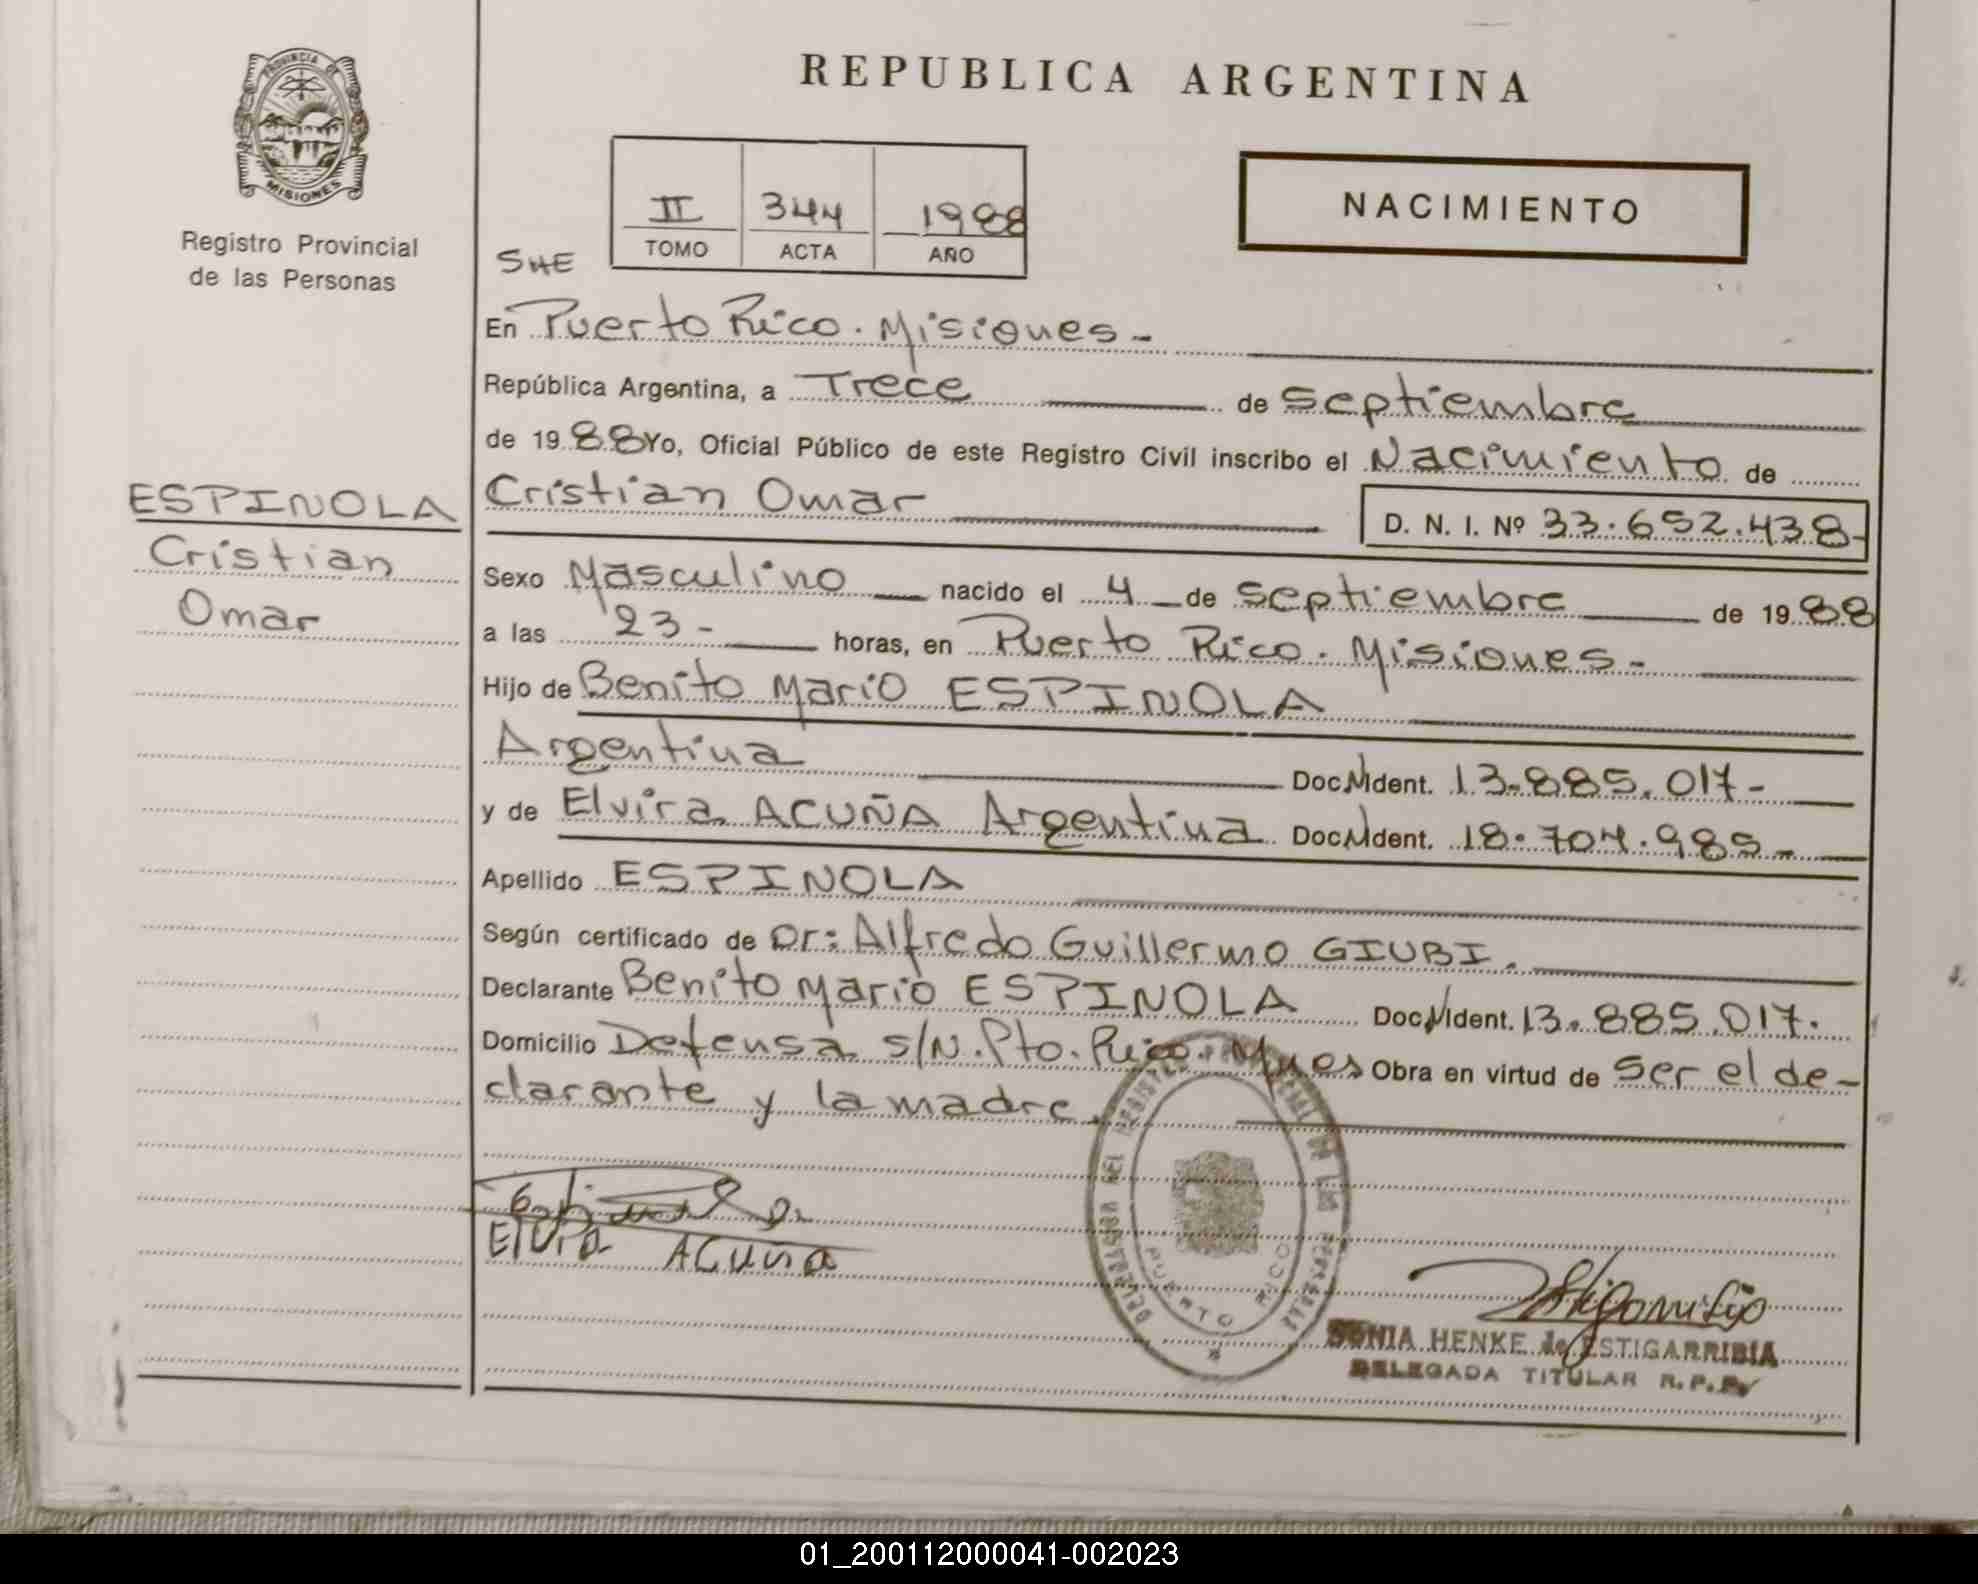 PROVINCIA DE
MISIONES
Registro Provincial
de las Personas
REPUBLICA ARGENTINA
II 344 1988
TOMO ACTA AÑO
NACIMIENTO
SHE
En Puerto Rico. Misiones-
República Argentina, a Trece de Septiembre
de 1988 Yo, Oficial Público de este Registro Civil inscribo el Nacimiento de
Cristian Omar D. N. I. Nº 33.652.438-
ESPINOLA
Cristian
Omar
Sexo Masculino nacido el 4 de Septiembre de 1988
a las 23- horas, en Puerto Rico. Misiones-
Hijo de Benito Mario ESPINOLA
Argentina Doc. Ident. 13.885.017-
y de Elvira ACUÑA Argentina Doc. Ident. 18.704.985-
Apellido ESPINOLA
Según certificado de Dr: Alfredo Guillermo GIUBI.
Declarante Benito Mario ESPINOLA Doc. Ident. 13.885.017.
Domicilio Defensa s/N. Pto. Rico. Mnes Obra en virtud de Ser el de-
clarante y la madre.
DELEGACION DEL REGISTRO PROVINCIAL DE LAS PERSONAS
PUERTO RICO
Elvira ACUÑA
SONIA HENKE de ESTIGARRIBIA
DELEGADA TITULAR R.P.P.
01_200112000041-002023